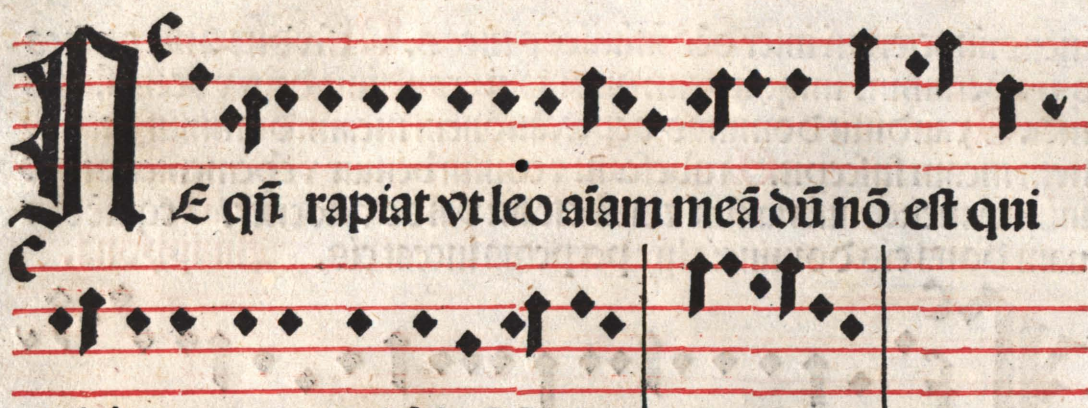 NE qñ rapiat vt leo aīam meā dū nō est qui